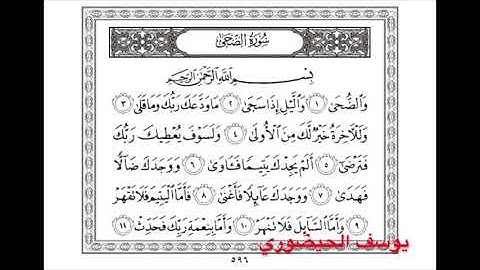 سُورَةُ الضُّحَىٰ
بِسْمِ اللَّهِ الرَّحْمَٰنِ الرَّحِيمِ
وَالضُّحَىٰ ١ وَاللَّيْلِ إِذَا سَجَىٰ ٢ مَا وَدَّعَكَ رَبُّكَ وَمَا قَلَىٰ ٣
وَلَلْآخِرَةُ خَيْرٌ لَّكَ مِنَ الْأُولَىٰ ٤ وَلَسَوْفَ يُعْطِيكَ رَبُّكَ
فَتَرْضَىٰ ٥ أَلَمْ يَجِدْكَ يَتِيمًا فَآوَىٰ ٦ وَوَجَدَكَ ضَالًّا
فَهَدَىٰ ٧ وَوَجَدَكَ عَائِلًا فَأَغْنَىٰ ٨ فَأَمَّا الْيَتِيمَ فَلَا تَقْهَرْ
٩ وَأَمَّا السَّائِلَ فَلَا تَنْهَرْ ١٠ وَأَمَّا بِنِعْمَةِ رَبِّكَ فَحَدِّثْ ١١
يوسف الحيضوري
٥٩٦